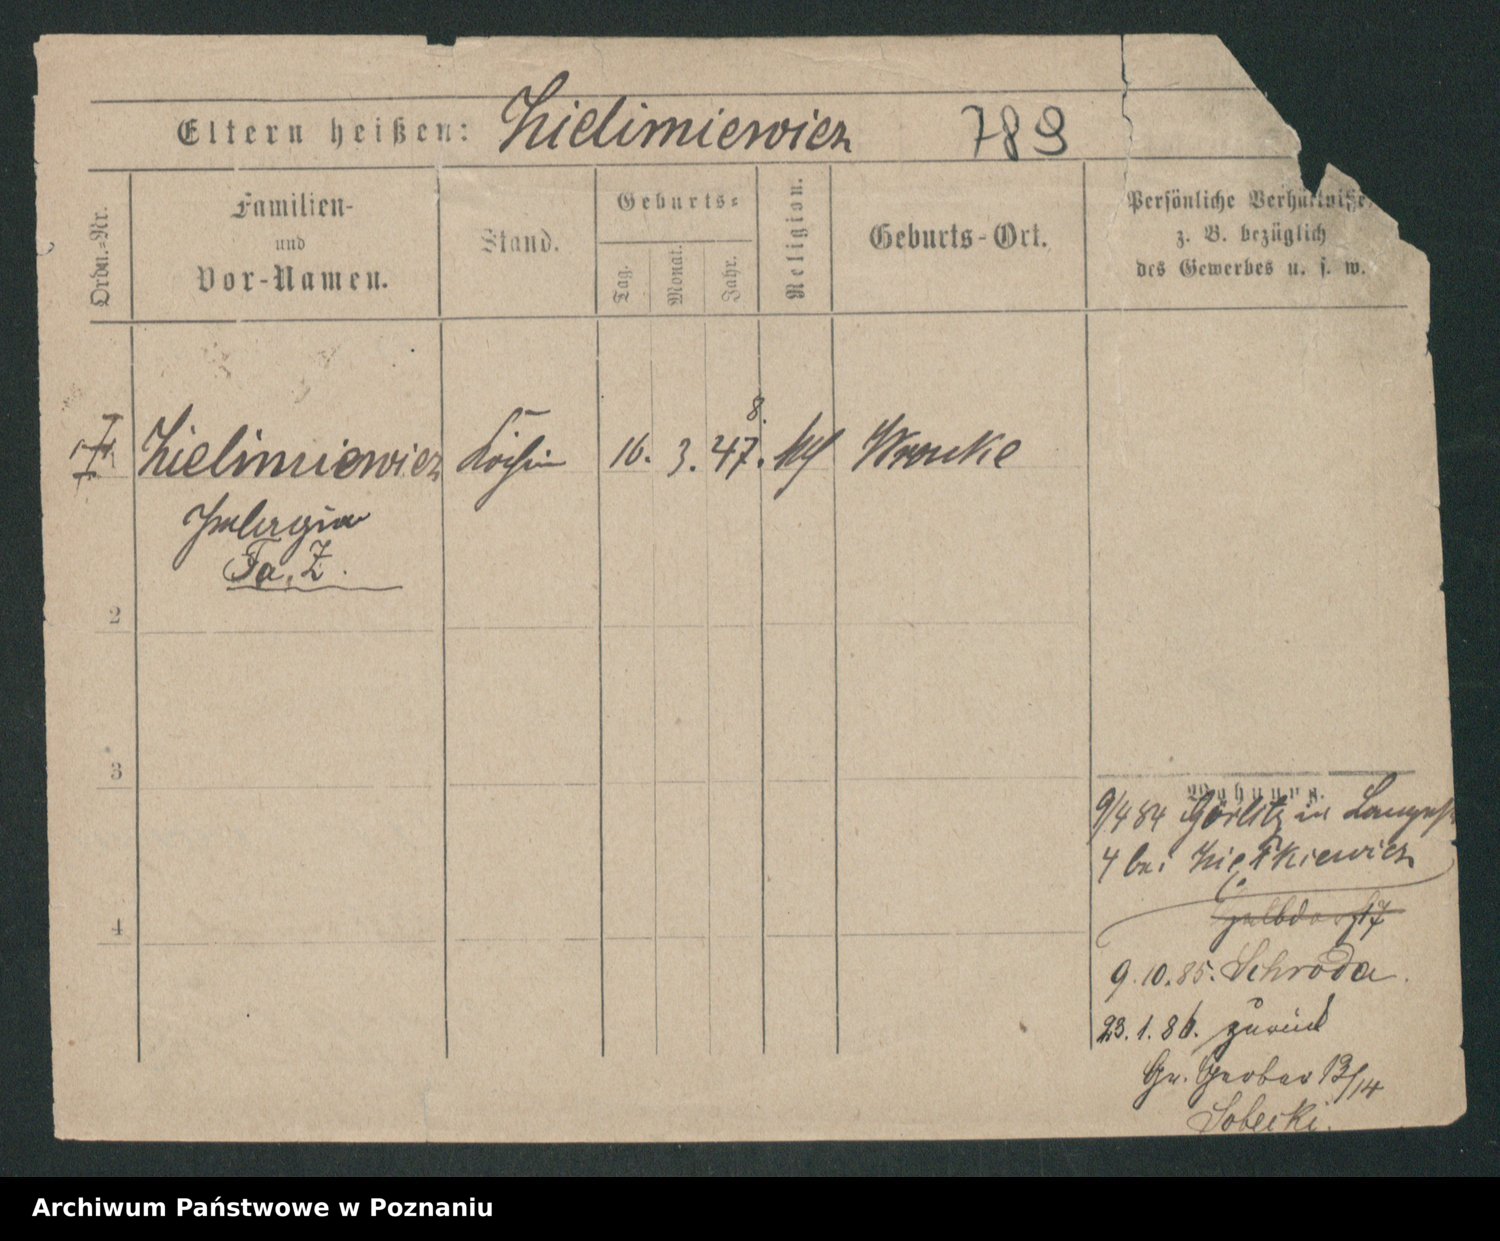 Eltern heißen: Zielimiewicz 789
Ordn.=Nr.
Familien-
und
Vor-Namen.
Stand.
Geburts=
Tag.
Monat.
Jahr.
Religion.
Geburts-Ort.
Persönliche Verhältniße,
z. B. bezüglich
des Gewerbes u. s. w.
8.
Zielimiewicz Köchin 16. 3. 47. Wronke
Fa. Z.
2
3
4
Wohnung.
9/4 84 Görlitz in
4 bei
9. 10. 85. Schroda.
23. 1. 86. zurück
Gr. Gerber 13/14
Sobecki.
Archiwum Państwowe w Poznaniu